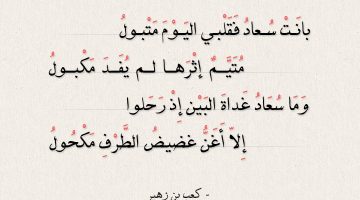 بانَتْ سُعادُ فَقَلْبي اليَوْمَ مَتْبولُ
مُتَيَّمٌ إثْرَها لم يُفَدَ مَكْبولُ
وَمَا سُعَادُ غَداةَ البَيْن إِذْ رَحَلوا
إِلاّ أَغَنُّ غضيضُ الطَّرْفِ مَكْحُولُ
- كعب بن زهير